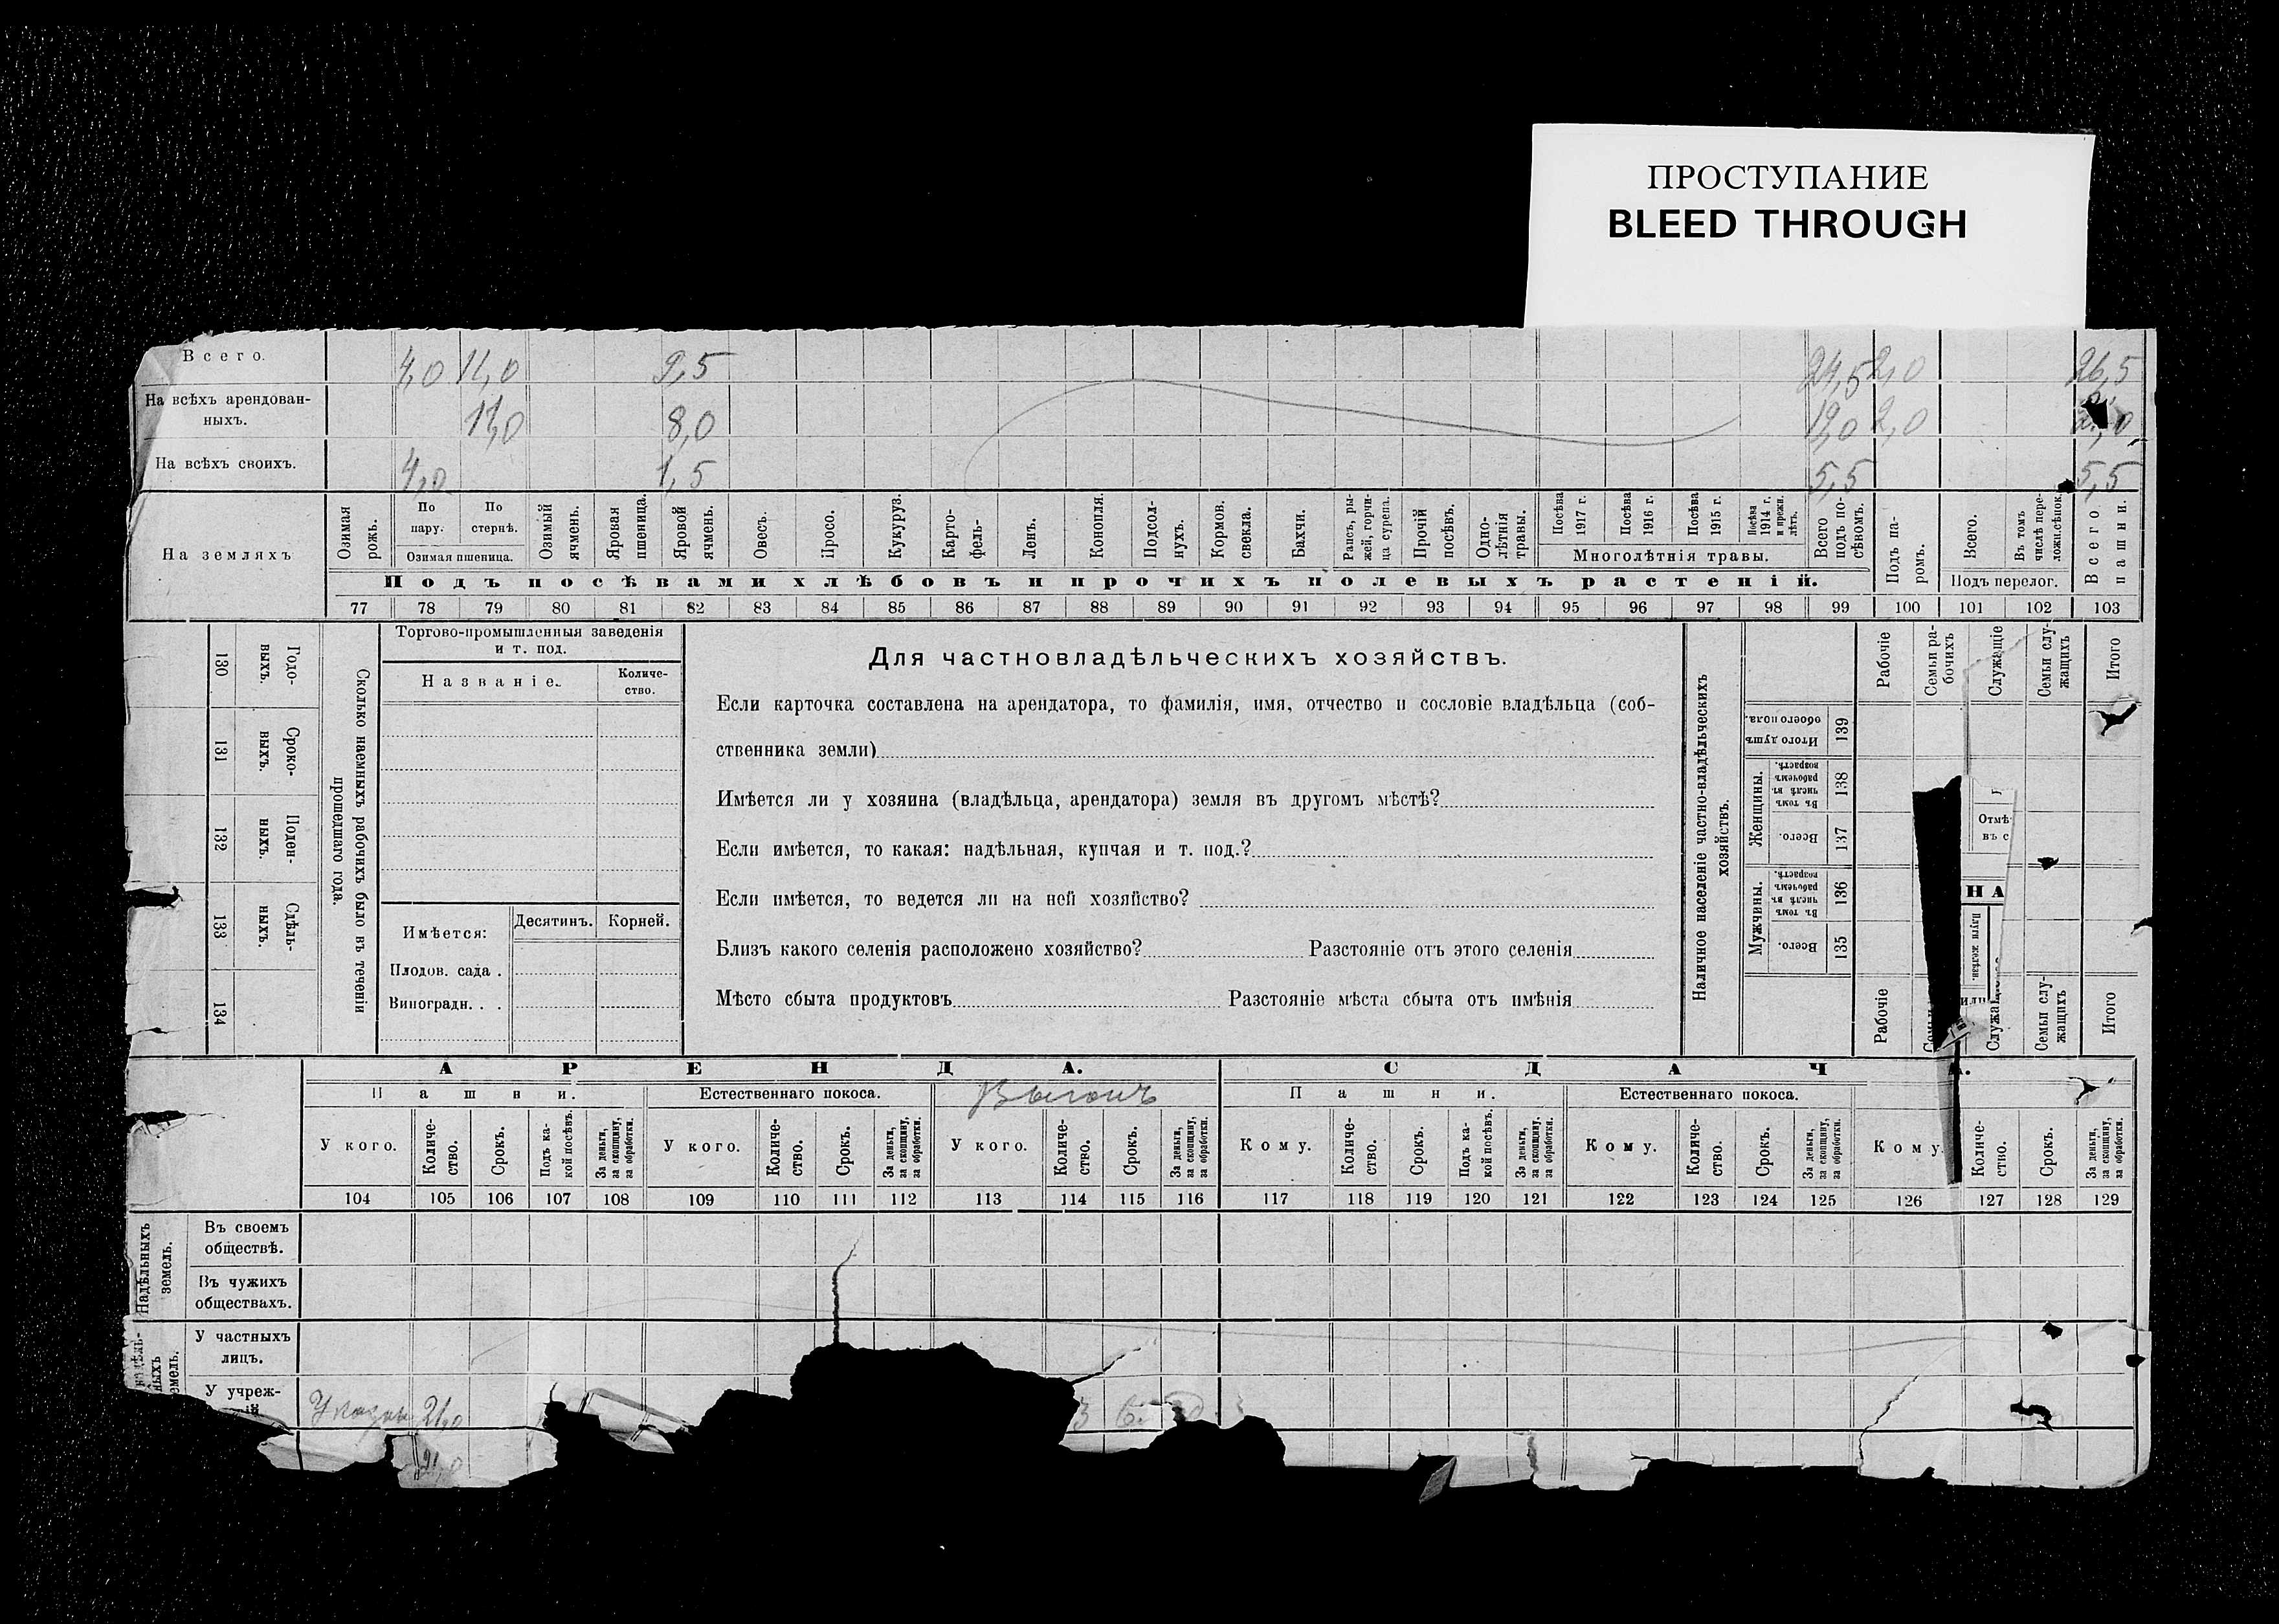 ПРОСТУПАНИЕ
BLEED THROUGH
Всего. 4,0 11,0 9,5 24,5 2,0 26,5
На всѣхъ арендован-
ныхъ. 11,0 8,0 19,0 2,0
На всѣхъ своихъ. 4,0 1,5 5,5 5,5
На земляхъ
Озимая рожь.
По пару.
По стернѣ.
Озимая пшеница.
Озимый ячмень.
Яровая пшеница.
Яровой ячмень.
Овесъ.
Просо.
Кукуруз.
Карто-
фель-
Ленъ.
Конопля.
Подсол-
нухъ.
Кормов. свекла.
Бахчи.
Рапсъ, ры-
жей, горчи-
ца сурепа.
Прочій посѣвъ.
Одно-
лѣтнія травы.
Посѣва 1917 г.
Посѣва 1916 г.
Посѣва 1915 г.
Посѣва 1914 г. и прежн. лѣтъ.
Многолѣтнія травы.
Всего подъ по-
сѣвомъ.
Подъ па-
ромъ.
Всего.
Въ томъ числѣ пере-
ложн.сѣнок.
Подъ перелог.
Всего пашни.
Подъ посѣвами хлѣбовъ и прочихъ полевыхъ растеній.
77 78 79 80 81 82 83 84 85 86 87 88 89 90 91 92 93 94 95 96 97 98 99 100 101 102 103
130 Годо-
выхъ.
131 Сроко-
выхъ.
132 Поден-
ныхъ.
133 Сдѣль-
ныхъ.
134
Сколько наемныхъ рабочихъ было въ теченіи
прошедшаго года.
Торгово-промышленныя заведенія
и т. под.
Названіе.
Количе-
ство.
Имѣется:
Десятинъ.
Корней.
Плодов. сада .
Виноградн. . .
Для частновладѣльческихъ хозяйствъ.
Если карточка составлена на арендатора, то фамилія, имя, отчество и сословіе владѣльца (соб-
ственника земли)
Имѣется ли у хозяина (владѣльца, арендатора) земля въ другомъ мѣстѣ?
Если имѣется, то какая: надѣльная, купчая и т. под.?
Если имѣется, то ведется ли на ней хозяйство?
Близъ какого селенія расположено хозяйство? Разстояніе отъ этого селенія
Мѣсто сбыта продуктовъ Разстояніе мѣста сбыта отъ имѣнія
Наличное населеніе частно-владѣльческихъ
хозяйствъ.
Итого душъ обоего пола. 139
Женщины.
Въ томъ числѣ въ рабочемъ возрастѣ. 138
Всего. 137
Мужчины.
Въ томъ числѣ въ рабочемъ возрастѣ. 136
Всего. 135
Рабочіе
Семьи ра-
бочихъ
Служащіе
Семьи слу-
жащихъ
Итого
Отмѣ
въ с
НА
Рабочіе
Семьи слу-
жащихъ
Итого
АРЕНДА.
СДАЧА.
Пашни.
Естественнаго покоса.
Выгонъ
Пашни.
Естественнаго покоса.
У кого.
Количе-
ство.
Срокъ.
Подъ ка-
кой посѣвъ.
За деньги, за скопщину, за обработки.
У кого.
Количе-
ство.
Срокъ.
За деньги, за скопщину, за обработки.
У кого.
Количе-
ство.
Срокъ.
За деньги, за скопщину, за обработки.
Кому.
Количе-
ство.
Срокъ.
Подъ ка-
кой посѣвъ.
За деньги, за скопщину, за обработки.
Кому.
Количе-
ство.
Срокъ.
За деньги, за скопщину, за обработки.
Кому.
Количе-
ство.
Срокъ.
За деньги, за скопщину, за обработки.
104 105 106 107 108 109 110 111 112 113 114 115 116 117 118 119 120 121 122 123 124 125 126 127 128 129
Надѣльныхъ
земель.
Въ своемъ
обществѣ.
Въ чужихъ
обществахъ.
У частныхъ
лицъ.
У учреж-
У казны 21,0
21,0